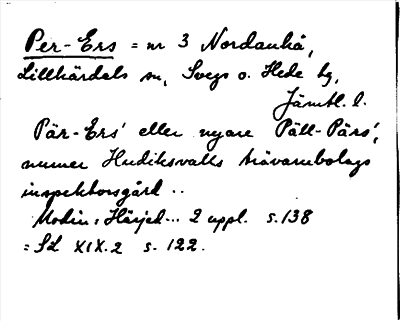 Per-Ers = nr 3 Nordanhå,
Lillhärdals sn, Svegs o. Hede tg,
Jämtl. l.
Pär-Ers' eller nyare Päll-Pärs',
numer Hudiksvalls trävarubolags
inspektorsgård ..
Modin: Härjed... 2 uppl. s. 138
= Sd XIX.2 s. 122.